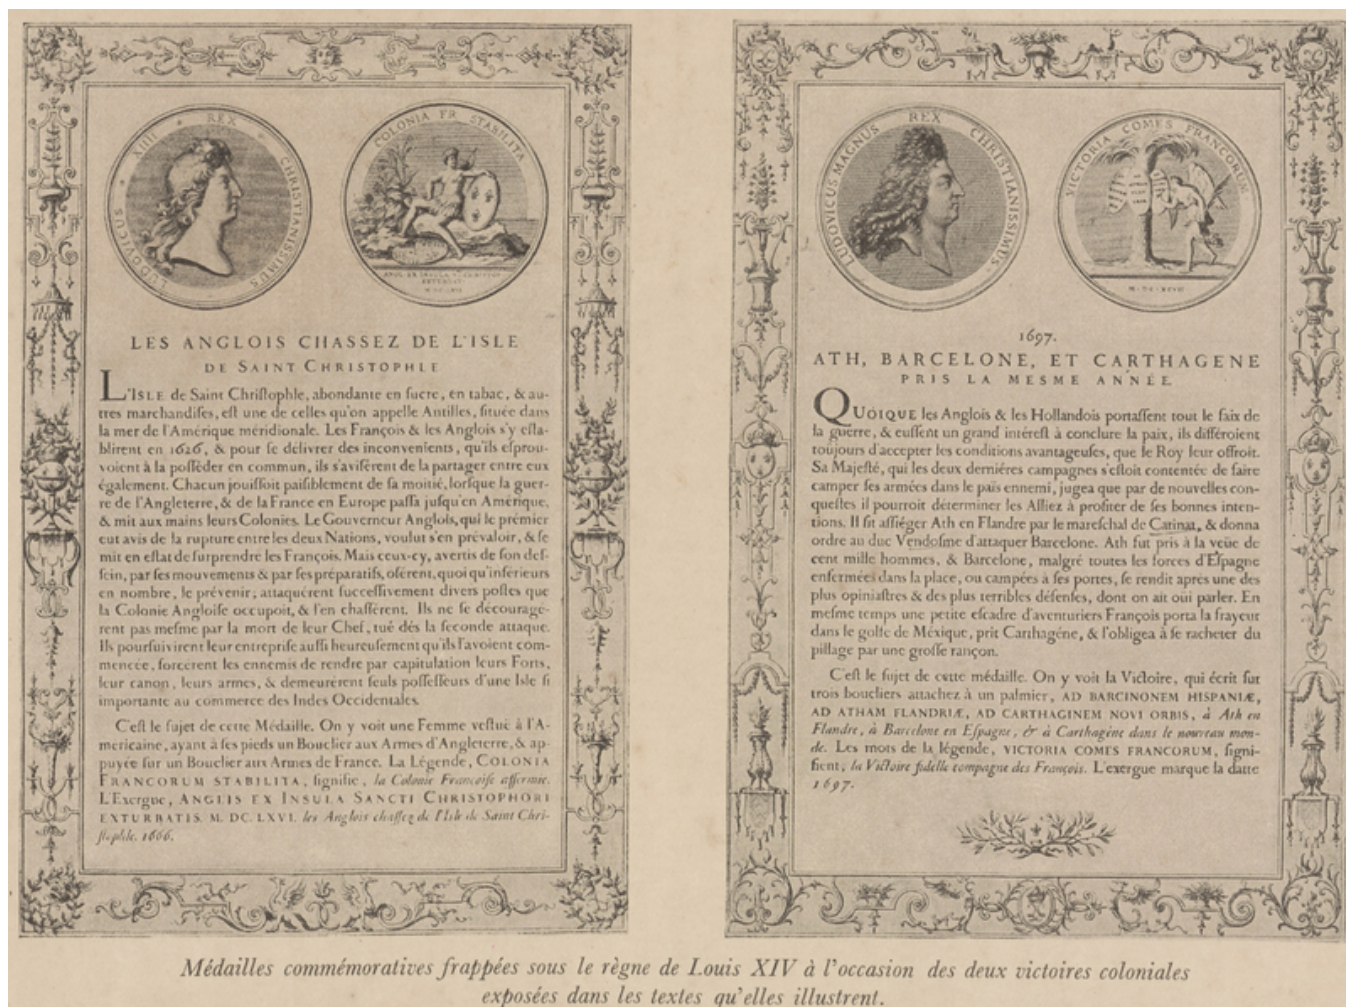 LUDOVICUS XIIII REX CHRISTIANISSIMUS
COLONIA FR. STABILITA
ANGL. EX INSULA S. CHRISTOPH.
EXTURBAT.
M.DC.LXVI.
LES ANGLOIS CHASSEZ DE L'ISLE
DE SAINT CHRISTOPHLE
L'ISLE de Saint Chriſtophle, abondante en ſucre, en tabac, & au-
tres marchandiſes, eſt une de celles qu'on appelle Antilles, ſituée dans
la mer de l'Amérique méridionale. Les François & les Anglois s'y eſta-
blirent en 1626, & pour ſe délivrer des inconvenients, qu'ils eſprou-
voient à la poſſéder en commun, ils s'aviſérent de la partager entre eux
également. Chacun jouiſſoit paiſiblement de ſa moitié, lorſque la guer-
re de l'Angleterre, & de la France en Europe paſſa juſqu'en Amérique,
& mit aux mains leurs Colonies. Le Gouverneur Anglois, qui le prémier
eut avis de la rupture entre les deux Nations, voulut s'en prévaloir, & ſe
mit en eſtat de ſurprendre les François. Mais ceux-cy, avertis de ſon deſ-
ſein, par ſes mouvements & par ſes préparatifs, oſérent, quoi qu'inférieurs
en nombre, le prévenir; attaquérent ſucceſſivement divers poſtes que
la Colonie Angloiſe occupoit, & l'en chaſſérent. Ils ne ſe décourage-
rent pas meſme par la mort de leur Chef, tué dés la ſeconde attaque.
Ils pourſuivirent leur entrepriſe auſſi heureuſement qu'ils l'avoient com-
mencée, forcérent les ennemis de rendre par capitulation leurs Forts,
leur canon, leurs armes, & demeurérent ſeuls poſſeſſeurs d'une Iſle ſi
importante au commerce des Indes Occidentales.
C'eſt le ſujet de cette Médaille. On y voit une Femme veſtuë à l'A-
mericaine, ayant à ſes pieds un Bouclier aux Armes d'Angleterre, & ap-
puyée ſur un Bouclier aux Armes de France. La Légende, COLONIA
FRANCORUM STABILITA, ſignifie, la Colonie Françoiſe affermie.
L'Exergue, ANGLIS EX INSULA SANCTI CHRISTOPHORI
EXTURBATIS. M. DC. LXVI. les Anglois chaſſez de l'Iſle de Saint Chri-
ſtophle. 1666.
LUDOVICUS MAGNUS REX CHRISTIANISSIMUS.
VICTORIA COMES FRANCORUM
M.DC.XCVII
1697.
ATH, BARCELONE, ET CARTHAGENE
PRIS LA MESME ANNÉE.
QUOIQUE les Anglois & les Hollandois portaſſent tout le faix de
la guerre, & euſſent un grand intéreſt à conclure la paix, ils différoient
toujours d'accepter les conditions avantageuſes, que le Roy leur offroit.
Sa Majeſté, qui les deux derniéres campagnes s'eſtoit contentée de faire
camper ſes armées dans le païs ennemi, jugea que par de nouvelles con-
queſtes il pourroit déterminer les Alliez à profiter de ſes bonnes inten-
tions. Il fit aſſiéger Ath en Flandre par le mareſchal de Catinat, & donna
ordre au duc Vendoſme d'attaquer Barcelone. Ath fut pris à la veüe de
cent mille hommes, & Barcelone, malgré toutes les forces d'Eſpagne
enfermées dans la place, ou campées à ſes portes, ſe rendit aprés une des
plus opiniaſtres & des plus terribles défenſes, dont on ait oui parler. En
meſme temps une petite eſcadre d'aventuriers François porta la frayeur
dans le golfe de Méxique, prit Carthagéne, & l'obligea à ſe racheter du
pillage par une groſſe rançon.
C'eſt le ſujet de cette médaille. On y voit la Victoire, qui écrit ſur
trois boucliers attachez à un palmier, AD BARCINONEM HISPANIÆ,
AD ATHAM FLANDRIÆ, AD CARTHAGINEM NOVI ORBIS, à Ath en
Flandre, à Barcelone en Eſpagne, & à Carthagéne dans le nouveau mon-
de. Les mots de la légende, VICTORIA COMES FRANCORUM, ſigni-
fient, la Victoire fidelle compagne des François. L'exergue marque la datte
1697.
Médailles commémoratives frappées sous le règne de Louis XIV à l'occasion des deux victoires coloniales
exposées dans les textes qu'elles illustrent.